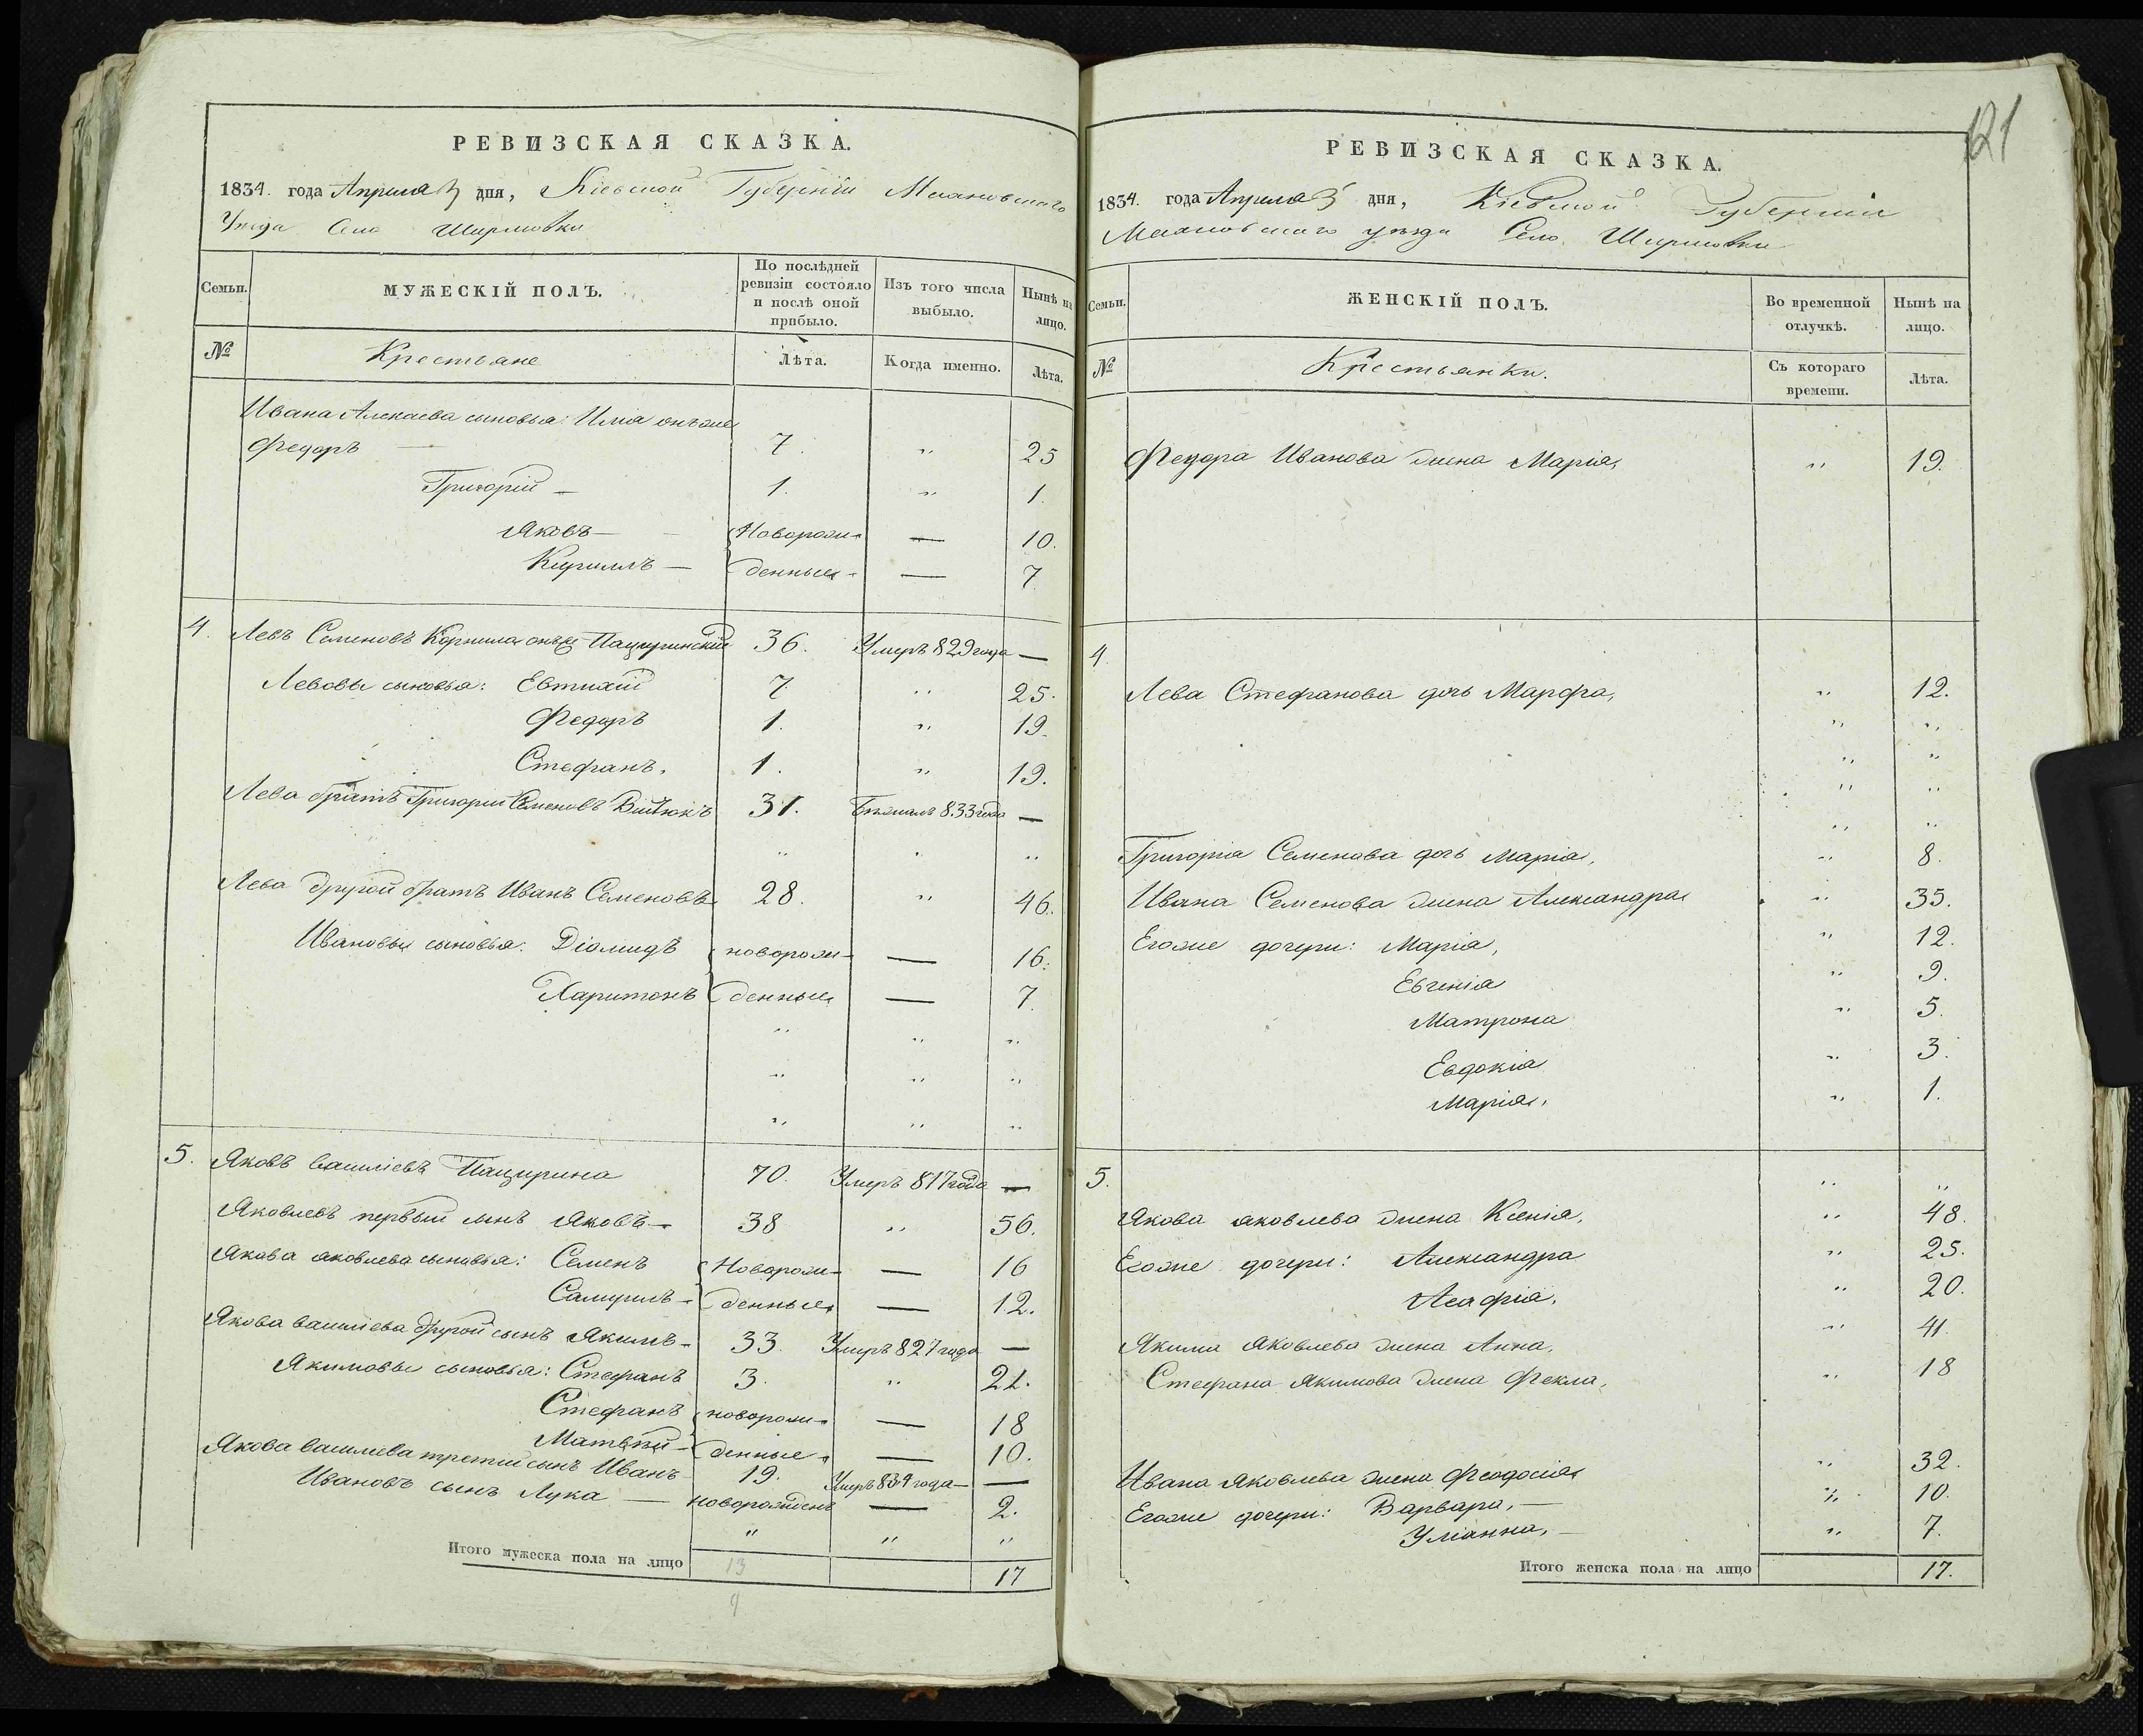 РЕВИЗСКАЯ СКАЗКА.
1834. года Апреля 3 дня, Кіевской Губерніи Махновского
Уезда Села Ширмовки
Семьи. МУЖЕСКІЙ ПОЛЪ. По послѣдней ревизіи состояло и послѣ оной прибыло. Изъ того числа выбыло. Нынѣ на лицо.
№ Крестьяне Лѣта. Когда именно. Лѣта.
Ивана сыновья:
Федоръ — 7. „ 25
Григорій — 1. „ 1.
Яковъ — Наворож- — 10.
Кирилъ — денные — 7.
4. Левъ Семеновъ Корнила онже 36. Умеръ 829 года —
Левовы сыновья: Евтихій 7. „ 25.
Федоръ 1. „ 19.
Стефанъ. 1. „ 19.
Лева братъ Григорій Семеновъ 31. Бежалъ 833 года —
„ „ „
Лева другой братъ Иванъ Семеновъ 28. „ 46.
Ивановы сыновья: Діомидъ новорож- — 16.
Харитонъ денные — 7.
„ „ „
„ „ „
„ „ „
5. Яковъ Василіевъ Пацирина 70. Умеръ 817 года —
Яковлевъ первый сынъ Яковъ — 38 „ 56.
Якова яковлева сыновья: Семенъ Новорож- — 16
Самуилъ — денные — 12.
Якова василіева другой сынъ Якимъ — 33. Умеръ 827 года —
Якимовы сыновья: Стефанъ 3. „ 21.
Стефанъ новорож- — 18
Матвѣй — денные — 10.
Якова василіева третій сынъ Иванъ 19. Умеръ 834 года — —
Ивановъ сынъ Лука — новорожденъ — 2.
„ „ „
Итого мужеска пола на лицо 13 17
9
121
РЕВИЗСКАЯ СКАЗКА.
1834. года Апреля 3 дня, Кіевской Губерніи
Махновского уѣзда Село Ширмовки
Семьи. ЖЕНСКІЙ ПОЛЪ. Во временной отлучкѣ. Нынѣ на лицо.
№ Крестьянки. Съ котораго времени. Лѣта.
Федора Иванова жена Марія, „ 19.
4.
Лева Стефанова дочь Марфа, „ 12.
„ „
„ „
„ „
„ „
Григорія Семенова дочь Марія, „ 8.
Ивана Семенова жена Александра „ 35.
Егоже дочери: Марія, „ 12.
Евгенія „ 9.
Матрона „ 5.
Евдокія „ 3.
Марія, „ 1.
5. „ „
Якова яковлева жена Ксенія, „ 48.
Егоже дочери: Александра „ 25.
Агафія, „ 20.
Якима Яковлева жена Анна, „ 41.
Стефана Якимова жена Фекла, „ 18
Ивана Яковлева жена Феодосія „ 32.
Егоже дочери: Варвара, — „ 10.
Уліанна, — „ 7.
Итого женска пола на лицо 17.